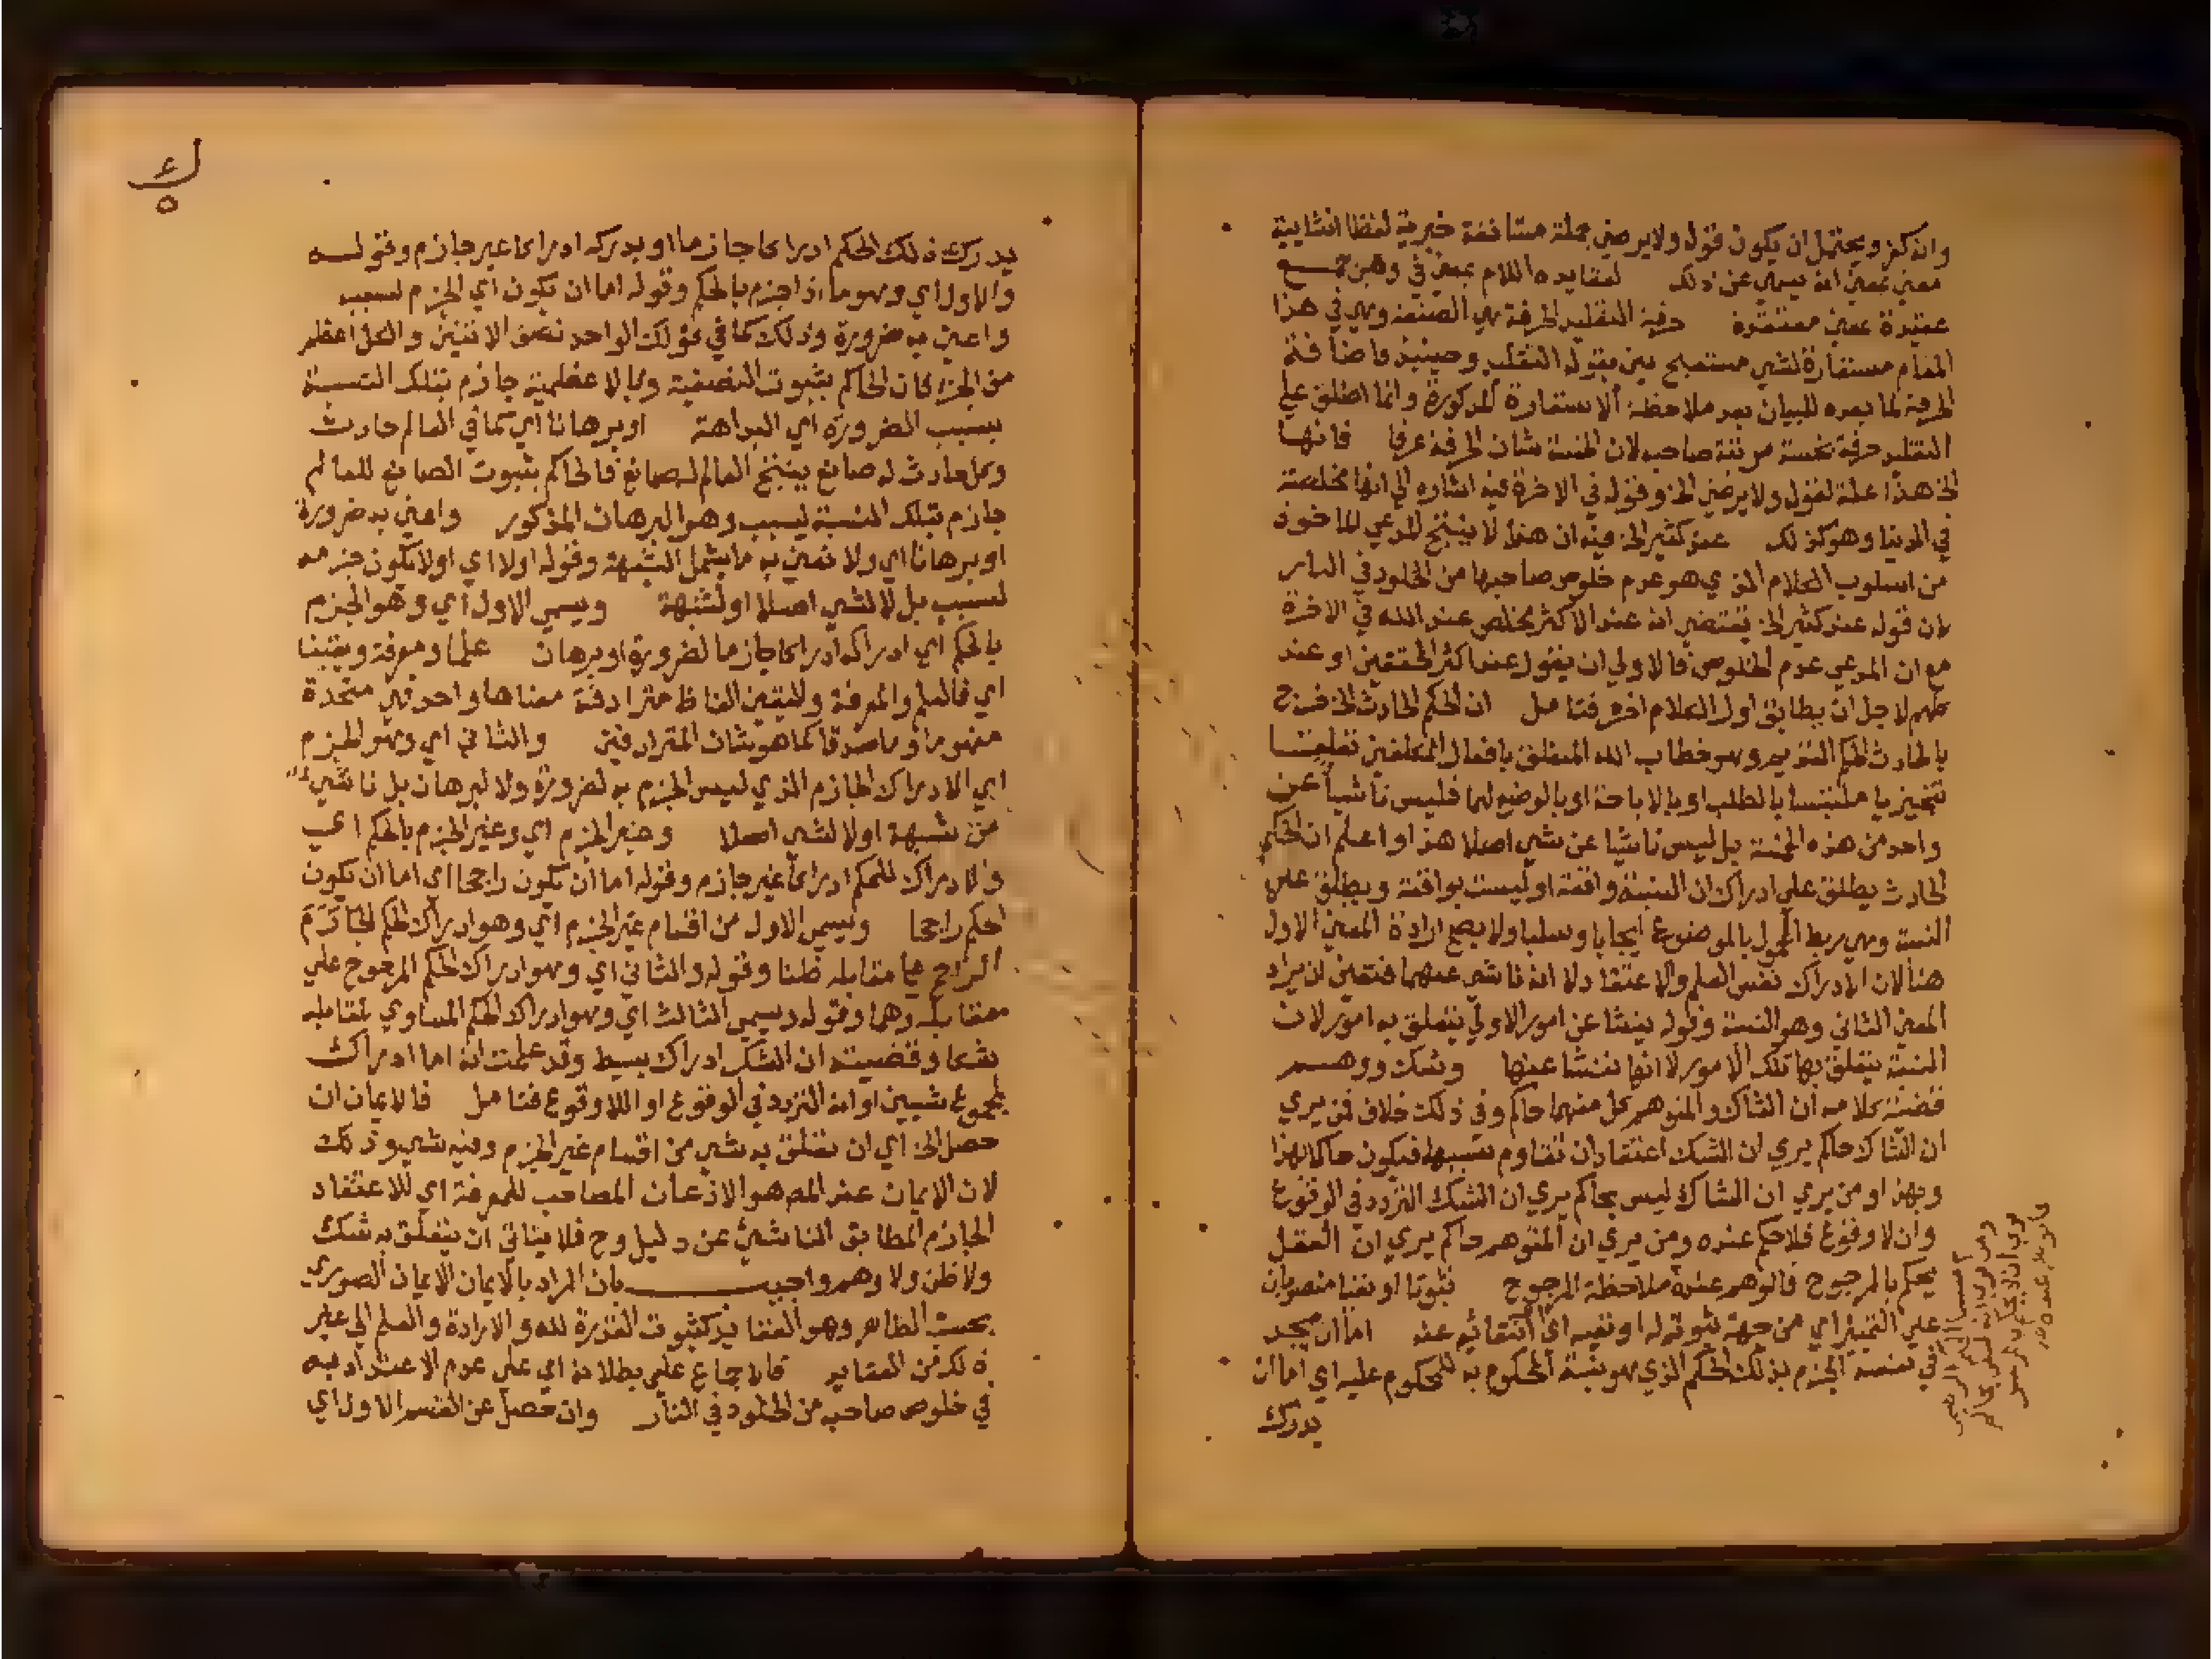 وان كن ويحتمل ان يكون قوله ولا يرضي جملة مستانفة خبرية لفظا انشايية
معني بمعني انه ينهي عن ذلك لعقايده اللام بمعني في وهي جمع
عقيدة بمعني معتقدة حرفة التقليد الحرفة هي الصنعة وهي في هذا
المقام مستعارة لشي مستقبح بين بقوله التقليد وحينيذ فاضافة
الحرفة لما بعده للبيان بعد ملاحظة الاستعارة المذكورة وانما اطلق علي
التقليد حرفة صاحبه لان شان الحرفة عرفا فانها
الخ هذا علة لقوله ولا يرضي الخ وقوله في الاخرة فيه اشارة الي انها مخلصة
في الدنيا وهو كذلك عند كثير الخ فيه ان هذا لا ينتج المدعي الماخوذ
من اسلوب الكلام الذي هو عدم خلوص صاحبها من الخلود في النار
لان قوله عند كثير الخ يقتضي انه عند الاكثر مخلص عند الله في الاخرة
مع ان المدعي عدم الخلوص فالاولي ان يقول عند اكثر المحققين او عند
كلهم لاجل ان يطابق اول الكلام اخره فتامل ان الحكم الحادث الخ خرج
بالحادث الحكم القديم وهو خطاب الله المتعلق بافعال المكلفين تعلقا
تنجيزيا ملتبسا بالطلب او بالاباحة او بالوضع لهما فليس ناشيا عن
واحد من هذه الخمسة بل ليس ناشيا عن شي اصلا هذا واعلم ان الحكم
الحادث يطلق علي ادراك ان النسبة واقعة او ليست بواقعة ويطلق علي
النسبة وهي ربط المحمول بالموضوع ايجابا وسلبا ولا يصح ارادة المعني الاول
هنا لان الادراك نفس العلم والاعتقاد لا انه ناشي عنهما فتعين ان يراد
المعني الثاني وهو النسبة وقوله ينشا عن امور الاولي يتعلق به امور لان
النسبة يتعلق بها تلك الامور لا انها تنشا عنها وشك ووهم
قضية كلامه ان الشاك والمتوهم كل منهما حاكم وفي ذلك خلاف فمن يري
ان الشاك حاكم يري ان الشك اعتقادان تقاوم سببهما فيكون حاكما بهذا
وبهذا ومن يري ان الشاك ليس بحاكم يري ان الشك التردد في الوقوع
وان لا وقوع فلا حكم عنده ومن يري ان المتوهم حاكم يري ان العقل
يحكم بالمرجوح فالوهم عنده ملاحظة المرجوح ثبوتا او نفيا منصوبان
علي التمييز اي من جهة ثبوته له او نفيه اي انتفائه عنه اما ان يجد
في نفسه الجزم بذلك الحكم الذي هو نسبة المحكوم به للمحكوم عليه اي اما ان
يدرك
يدرك ذلك الحكم ادراكا جازما او يدركه ادراكا غير جازم وقوله
والاول اي وهو ما اذا جزم بالحكم وقوله اما ان يكون اي الجزم لسبب
واعني به ضرورة وذلك كما في قولك الواحد نصف الاثنين والكل اعظم
من الجزء فان الحاكم بثبوت النصفية وبالاعظمية جازم بتلك النسبة
بسبب الضرورة اي البداهة او برهانا اي كما في العالم حادث
وكل حادث له صانع ينتج العالم له صانع فالحاكم بثبوت الصانع للعالم
جازم بتلك النسبة لسبب وهو البرهان المذكور واعني به ضرورة
او برهانا اي ولا نعني به ما يشمل الشبهة وقوله اولا اي اولا يكون جزمه
لسبب بل لا لشي اصلا او لشبهة ويسمي الاول اي وهو الجزم
بالحكم اي ادراكه ادراكا جازما لضرورة او برهان علما ومعرفة ويقينا
اي فالعلم والمعرفة واليقين الفاظ مترادفة معناها واحد فهي متحدة
مفهوما وماصدقا كما هو شان المترادفين والثاني اي وهو الجزم
اي الادراك الجازم الذي ليس الجزم به لضرورة ولا لبرهان بل ناشي
من شبهة اولا لشي اصلا وغير الجزم اي وغير الجزم بالحكم اي
والادراك للحكم ادراكا غير جازم وقوله اما ان يكون راجحا اي اما ان يكون
الحكم راجحا ويسمي الاول من اقسام غير الجزم اي وهو ادراك الحكم
الراجح علي مقابله ظنا وقوله والثاني اي وهو ادراك الحكم المرجوح علي
مقابله وهما وقوله ويسمي الثالث اي وهو ادراك الحكم المساوي لمقابله
شكا وقضيته ان الشك ادراك بسيط وقد علمت انه اما ادراك
مجموع شيين او انه التردد في الوقوع او اللا وقوع فتامل فالايمان ان
حصل الخ اي ان تعلق به شي من اقسام غير الجزم وفيه شي وذلك
لان الايمان عند المص هو الاذعان المصاحب للمعرفة اي للاعتقاد
الجازم المطابق الناشي عن دليل وح فلا يتاتي ان يتعلق به شك
ولا ظن ولا وهم واجيب بان المراد بالايمان الايمان الصوري
بحسب الظاهر وهو العقايد كثبوت القدرة لله والارادة والعلم الي غير
ذلك من العقايد فالاجماع علي بطلانه اي علي عدم الاعتداد به
في خلوص صاحبه من الخلود في النار وان حصل عن القسم الاول اي